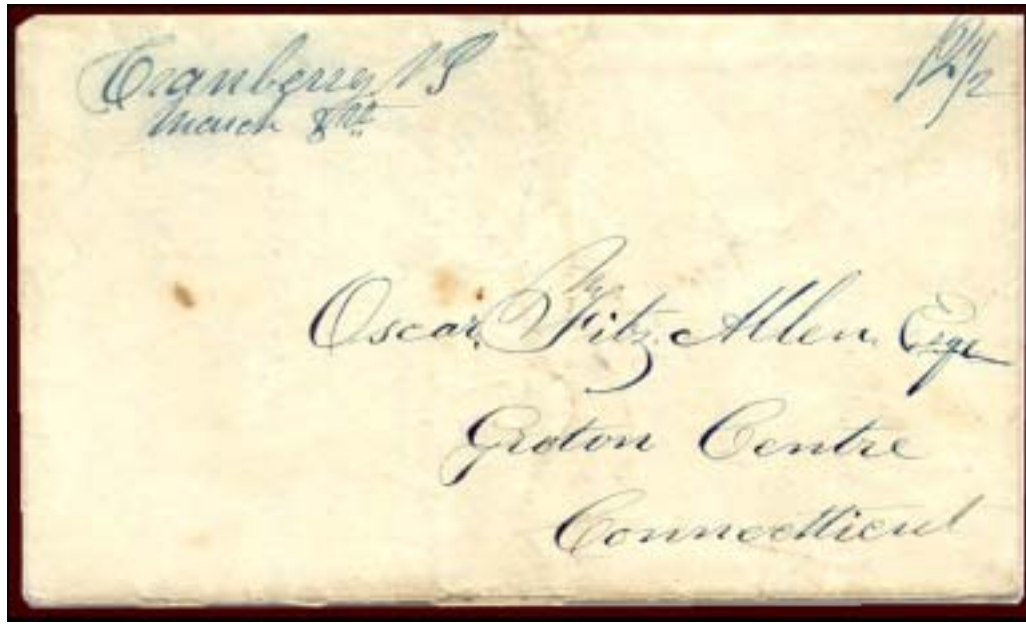 Cranberry NJ
March 8th
12 1/2
Oscar Fitz Allen Esqr
Groton Centre
Connecticut